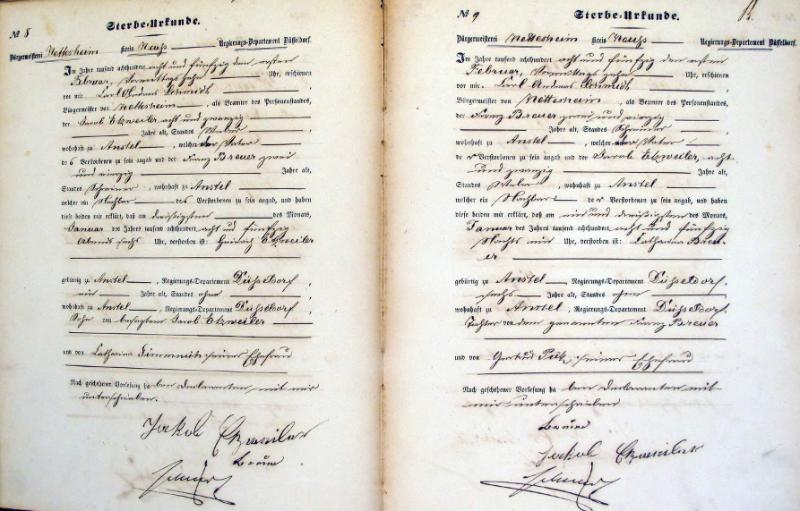 № 8
Sterbe-Urkunde.
Bürgermeisterei Nettesheim Kreis Neuss Regierungs-Departement Düsseldorf.
Im Jahre tausend achthundert acht und fünfzig den ersten
Februar, Vormittags zehn Uhr, erschienen
vor mir Carl Andreas Schmidt
Bürgermeister von Nettesheim, als Beamter des Personenstandes,
der Jacob Etzweiler acht und zwanzig
Jahre alt, Standes Weber
wohnhaft zu Anstel, welcher der Vater
des Verstorbenen zu sein angab und der Franz Breuer zwei
und vierzig Jahre alt,
Standes Schreiner, wohnhaft zu Anstel
welcher ein Nachbar des Verstorbenen zu sein angab, und haben
diese beiden mir erklärt, daß am dreißigsten des Monats,
Januar des Jahres tausend achthundert acht und fünfzig
Abends sechs Uhr, verstorben ist: Heinrich Etzweiler
gebürtig zu Anstel, Regierungs-Departement Düsseldorf
Jahre alt, Standes ohne
wohnhaft zu Anstel, Regierungs-Departement Düsseldorf
Sohn Jacob Etzweiler
und von Catharina seiner Ehefrau
Nach geschehener Vorlesung haben Declaranten mit mir
unterschrieben.
Jakob Etzweiler
Breuer
Schmidt
№ 9
Sterbe-Urkunde.
Bürgermeisterei Nettesheim Kreis Neuss Regierungs-Departement Düsseldorf.
Im Jahre tausend achthundert acht und fünfzig den ersten
Februar, Vormittags zehn Uhr, erschienen
vor mir Carl Andreas Schmidt
Bürgermeister von Nettesheim, als Beamter des Personenstandes,
der Franz Breuer zwei und vierzig
Jahre alt, Standes Schreiner
wohnhaft zu Anstel, welcher der Vater
der Verstorbenen zu sein angab und der Jacob Etzweiler, acht
und zwanzig Jahre alt,
Standes Weber, wohnhaft zu Anstel
welcher ein Nachbar der Verstorbenen zu sein angab, und haben
diese beiden mir erklärt, daß am ein und dreißigsten des Monats,
Januar des Jahres tausend achthundert acht und fünfzig
Nachts Uhr, verstorben ist: Catharina Breu-
er
gebürtig zu Anstel, Regierungs-Departement Düsseldorf.
sechs Jahre alt, Standes ohne
wohnhaft zu Anstel, Regierungs-Departement Düsseldorf.
Tochter von dem genannten Franz Breuer
und von Gertrud seiner Ehefrau
Nach geschehener Vorlesung haben Declaranten mit
mir unterschrieben
Breuer
Jakob Etzweiler
Schmidt